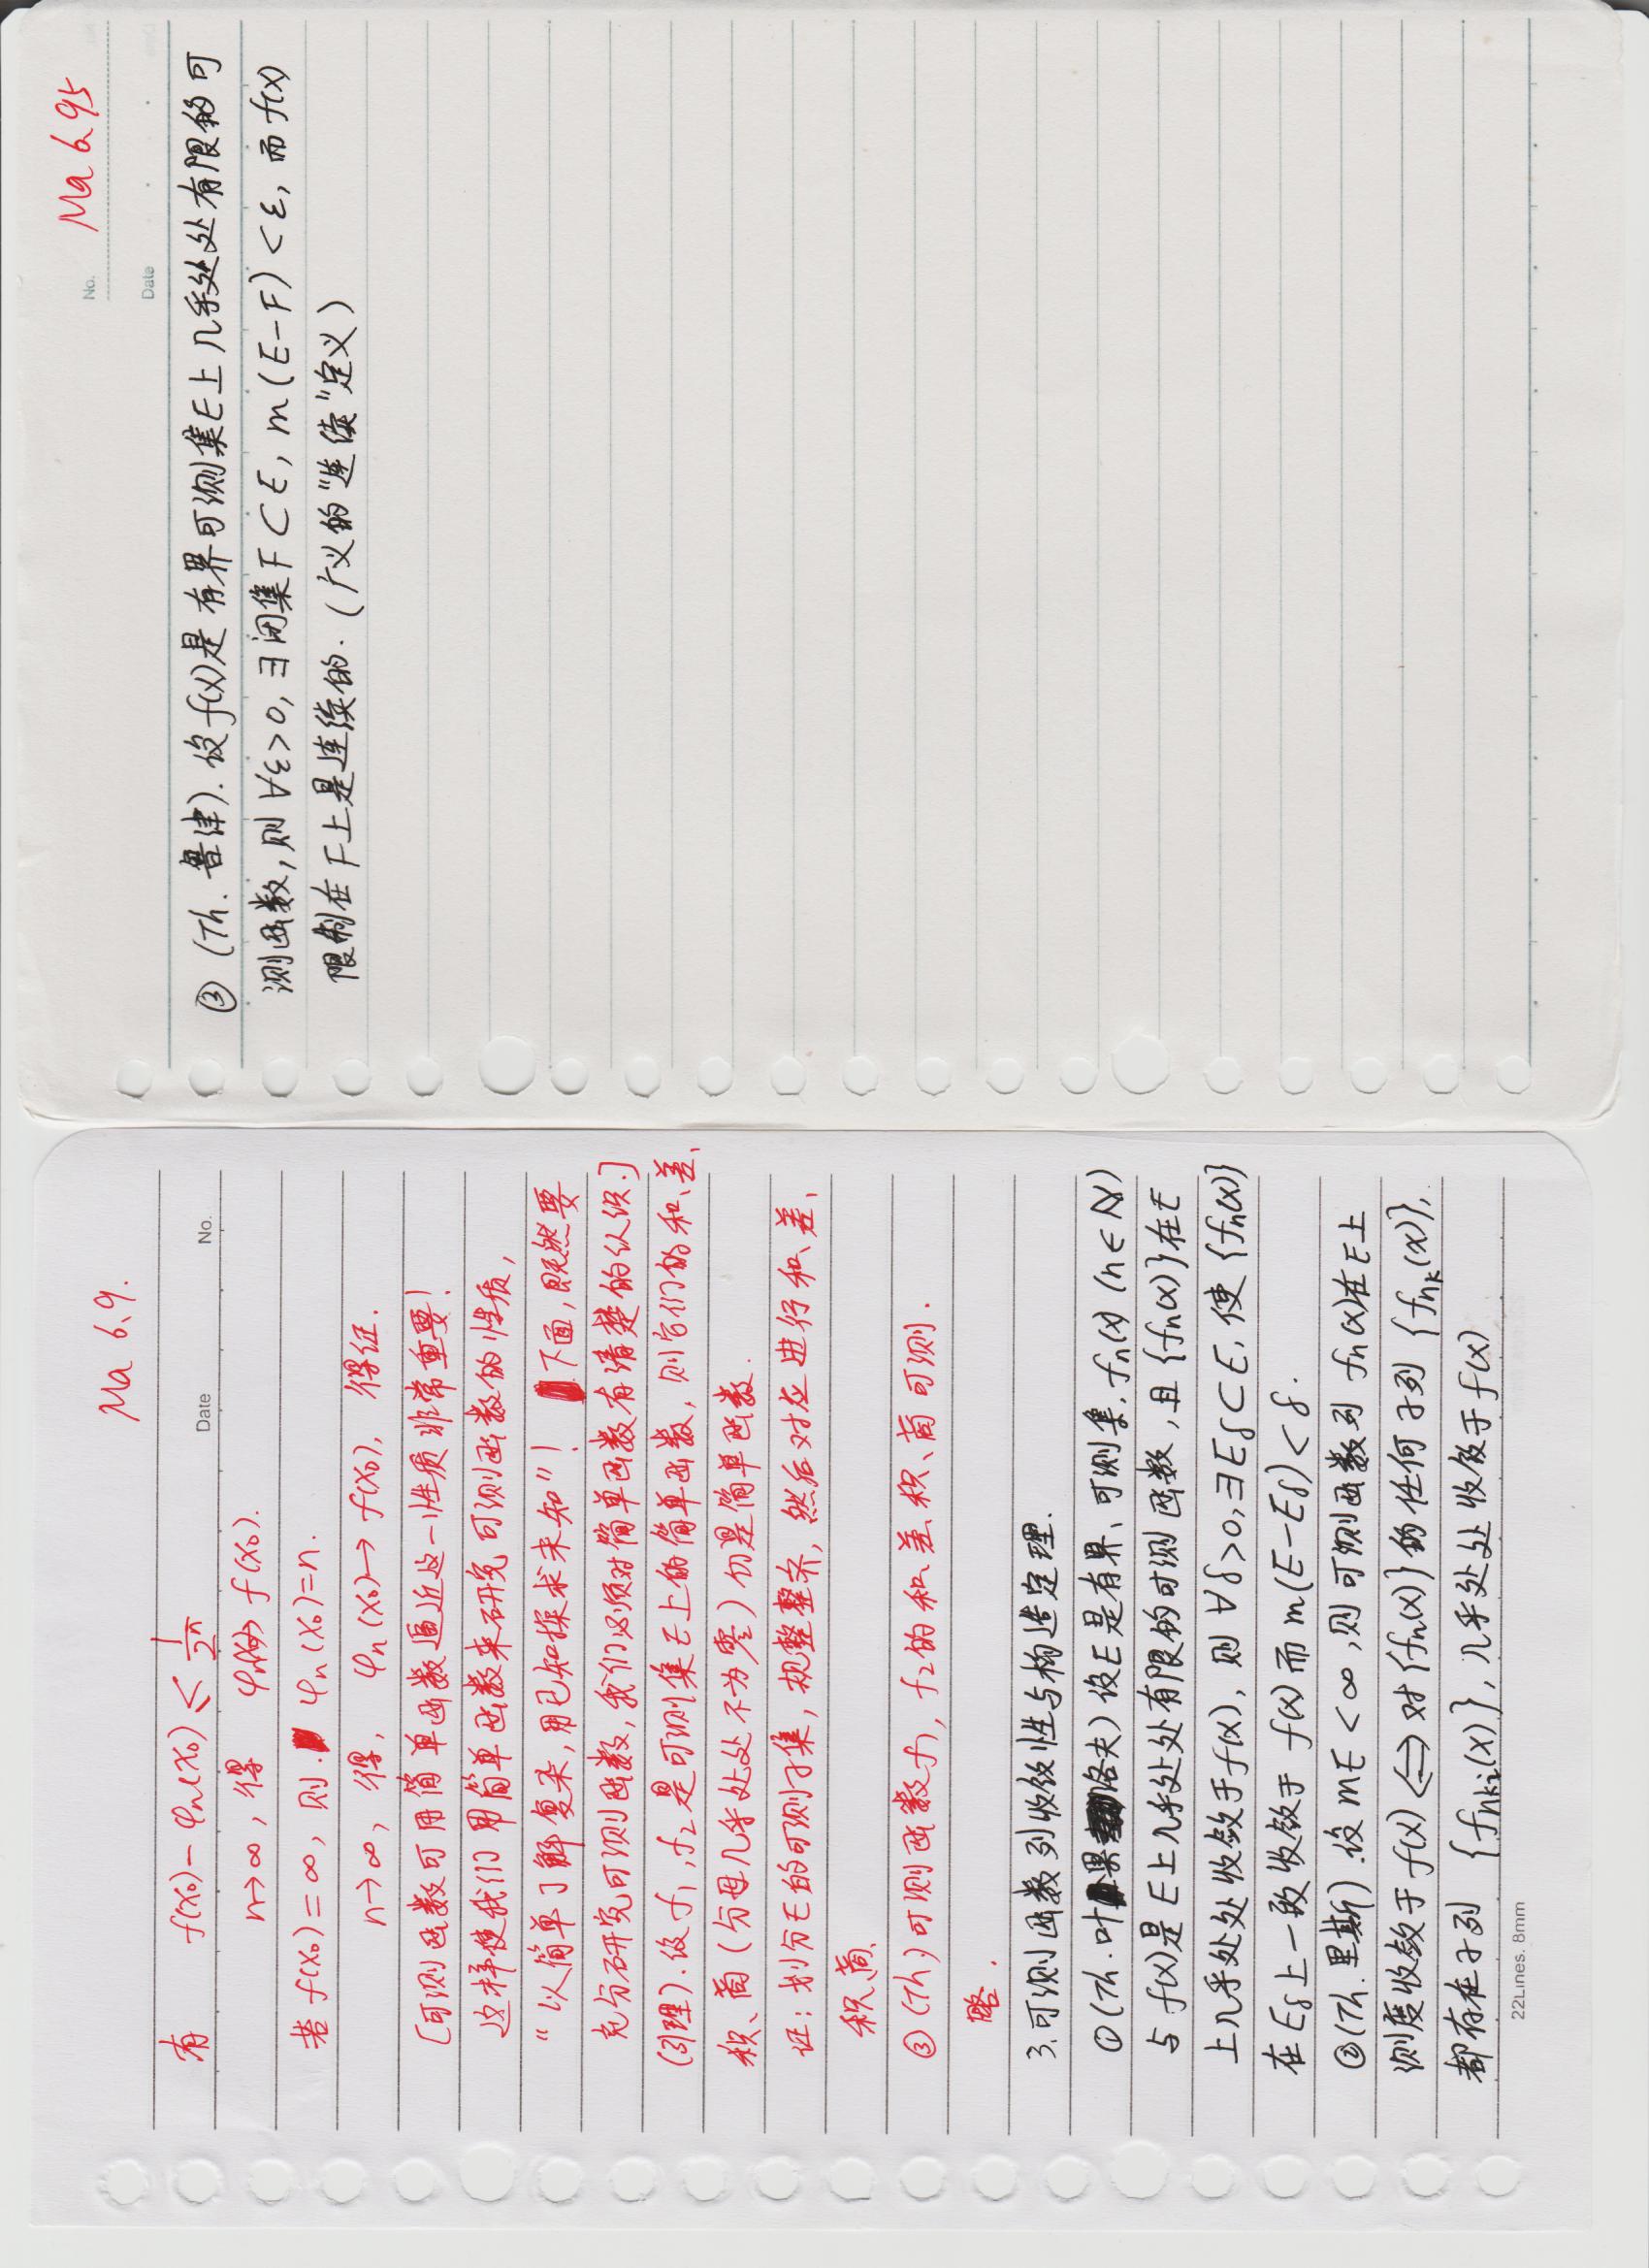 Ma 6.9.
有 f(x₀)-φₙ(x₀) ≤ 1/2ⁿ
Date No.
n→∞, 得 φₙ(x₀)→ f(x₀).
若 f(x₀)=∞, 则. φₙ(x₀)=n.
n→∞, 得, φₙ(x₀)→ f(x₀), 得证.
[可测函数可用简单函数逼近这一性质非常重要!
这样使我们用简单函数来研究可测函数的性质,
“以简单了解复杂,用已知探求未知”! 下面,既然要
充分研究可测函数,我们必须对简单函数有清楚的认识.]
(引理).设 f₁,f₂ 是可测集E上的简单函数, 则它们的和、差、
积、商(分母几乎处处不为零)仍是简单函数.
证: 划分E的可测子集, 规整整齐, 然后对应进行和、差、
积、商.
③ (Th.)可测函数f₁, f₂的和、差、积、商可测.
略.
3.可测函数列收敛性与构造定理.
①(Th.叶果洛夫)设E是有界、可测集, fₙ(x) (n∈N)
与 f(x)是E上几乎处处有限的可测函数,且{fₙ(x)}在E
上几乎处处收敛于f(x), 则∀δ>0,∃Eδ⊂E, 使{fₙ(x)}
在Eδ上一致收敛于 f(x)而m(E-Eδ)<δ.
②(Th.里斯).设 mE<∞,则可测函数列 fₙ(x)在E上
测度收敛于f(x)⟺对{fₙ(x)}的任何子列 {fₙₖ(x)},
都存在子列 {fₙₖᵢ(x)}, 几乎处处收敛于f(x)
22Lines. 8mm
No. Ma 6.95
Date
③ (Th. 鲁津). 设f(x)是有界可测集E上几乎处处有限的可
测函数,则∀ε>0,∃闭集F⊂E, m(E-F)<ε, 而f(x)
限制在F上是连续的. (广义的“连续”定义)